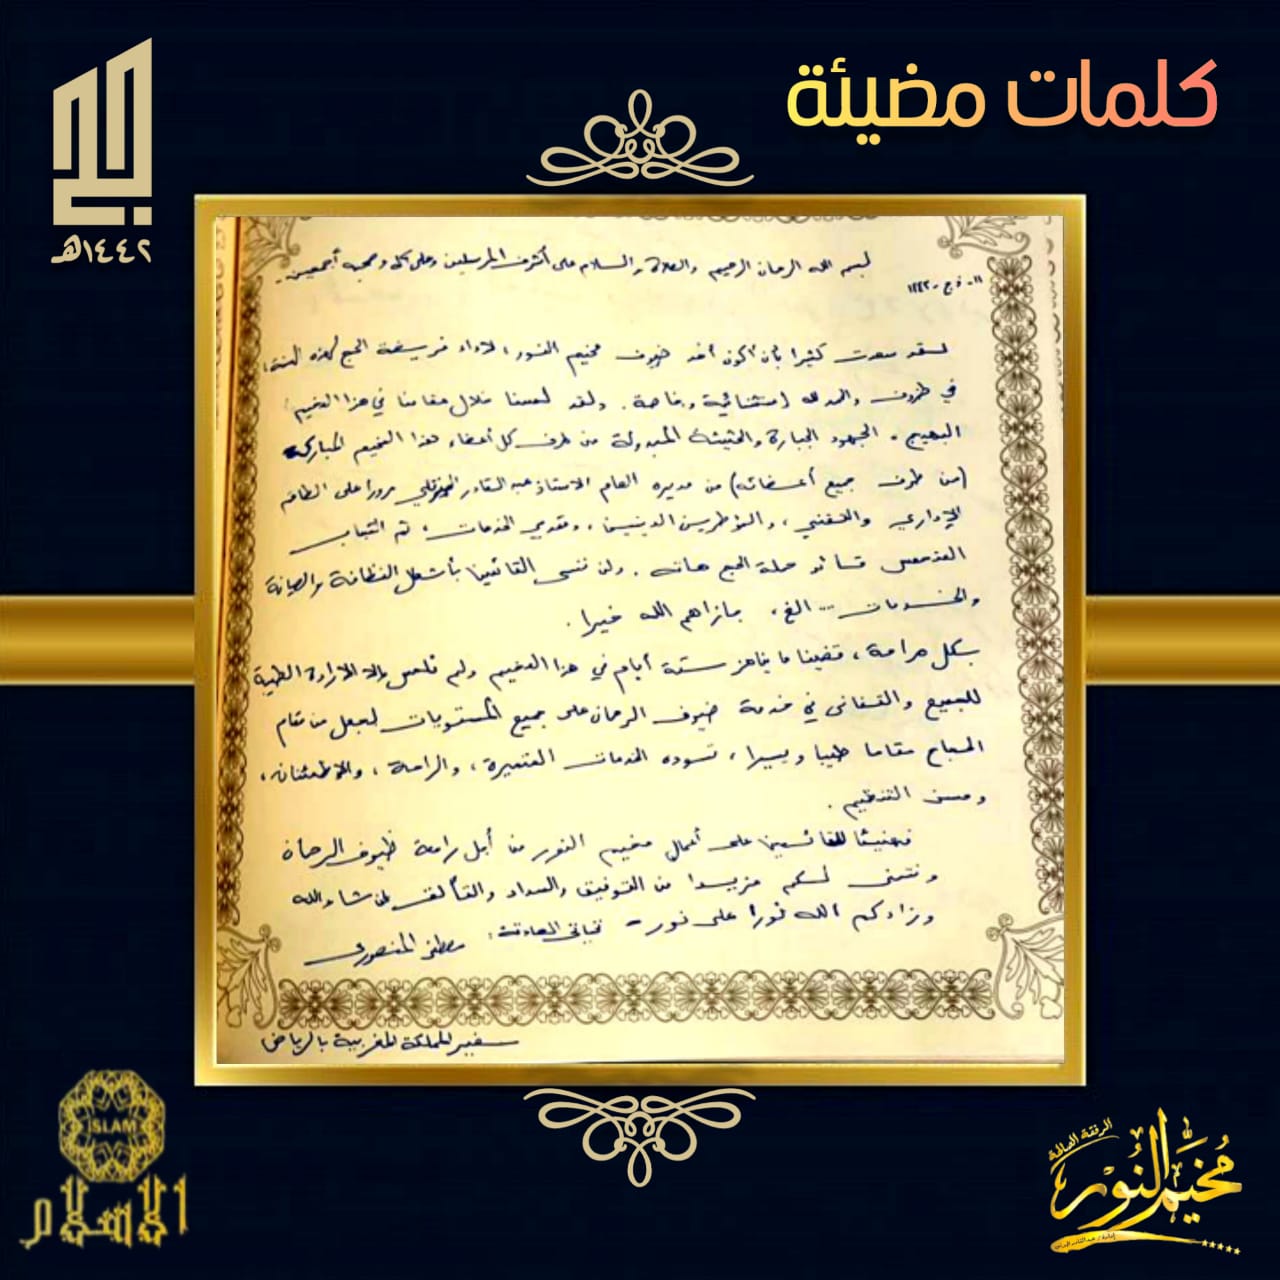 كلمات مضيئة
١٤٤٢هـ
بسم الله الرحمان الرحيم والصلاة والسلام على أشرف المرسلين وعلى آله وصحبه أجمعين.
١١ - ذ ج - ١٤٤٢
لقد سعدت كثيرا بأن أكون أحد ضيوف مخيم النور، لأداء فريضة الحج لهذه السنة،
في ظروف والحمد لله استثنائية وخاصة. ولقد لمسنا خلال مقامنا في هذا المخيم
البهيج، الجهود الجبارة والحثيثة المبذولة من طرف كل أعضاء هذا المخيم المبارك
(من طرف جميع أعضائه) من مديره العام الاستاذ عبد القادر مرورا على الطاقم
الإداري والتقني، والمؤطرين الدينيين، ومقدمي الخدمات، ثم الشباب
المتحمس قائد حملة الحج هاته. ولن ننسى القائمين بأشغال النظافة والصيانة
والخدمات ... الخ، جازاهم الله خيرا.
بكل صراحة، قضينا ما يناهز ستة أيام في هذا المخيم ولم نلمس إلا الارادة الطيبة
للجميع والتفاني في خدمة ضيوف الرحمان على جميع المستويات لجعل من مقام
الحجاج مقاما طيبا ويسيرا، تسوده الخدمات المتميزة، والراحة، والاطمئنان،
وحسن التنظيم.
فهنيئا للقائمين على أعمال مخيم النور من أجل راحة ضيوف الرحمان
ونتمنى لكم مزيدا من التوفيق والسداد والتألق إن شاء الله
وزادكم الله نورا على نور - تحياتي الصادقة: مصطفى المنصوري
سفير المملكة المغربية بالرياض
ISLAM
الاسلام
الرفقة الصالحة
مخيم النور